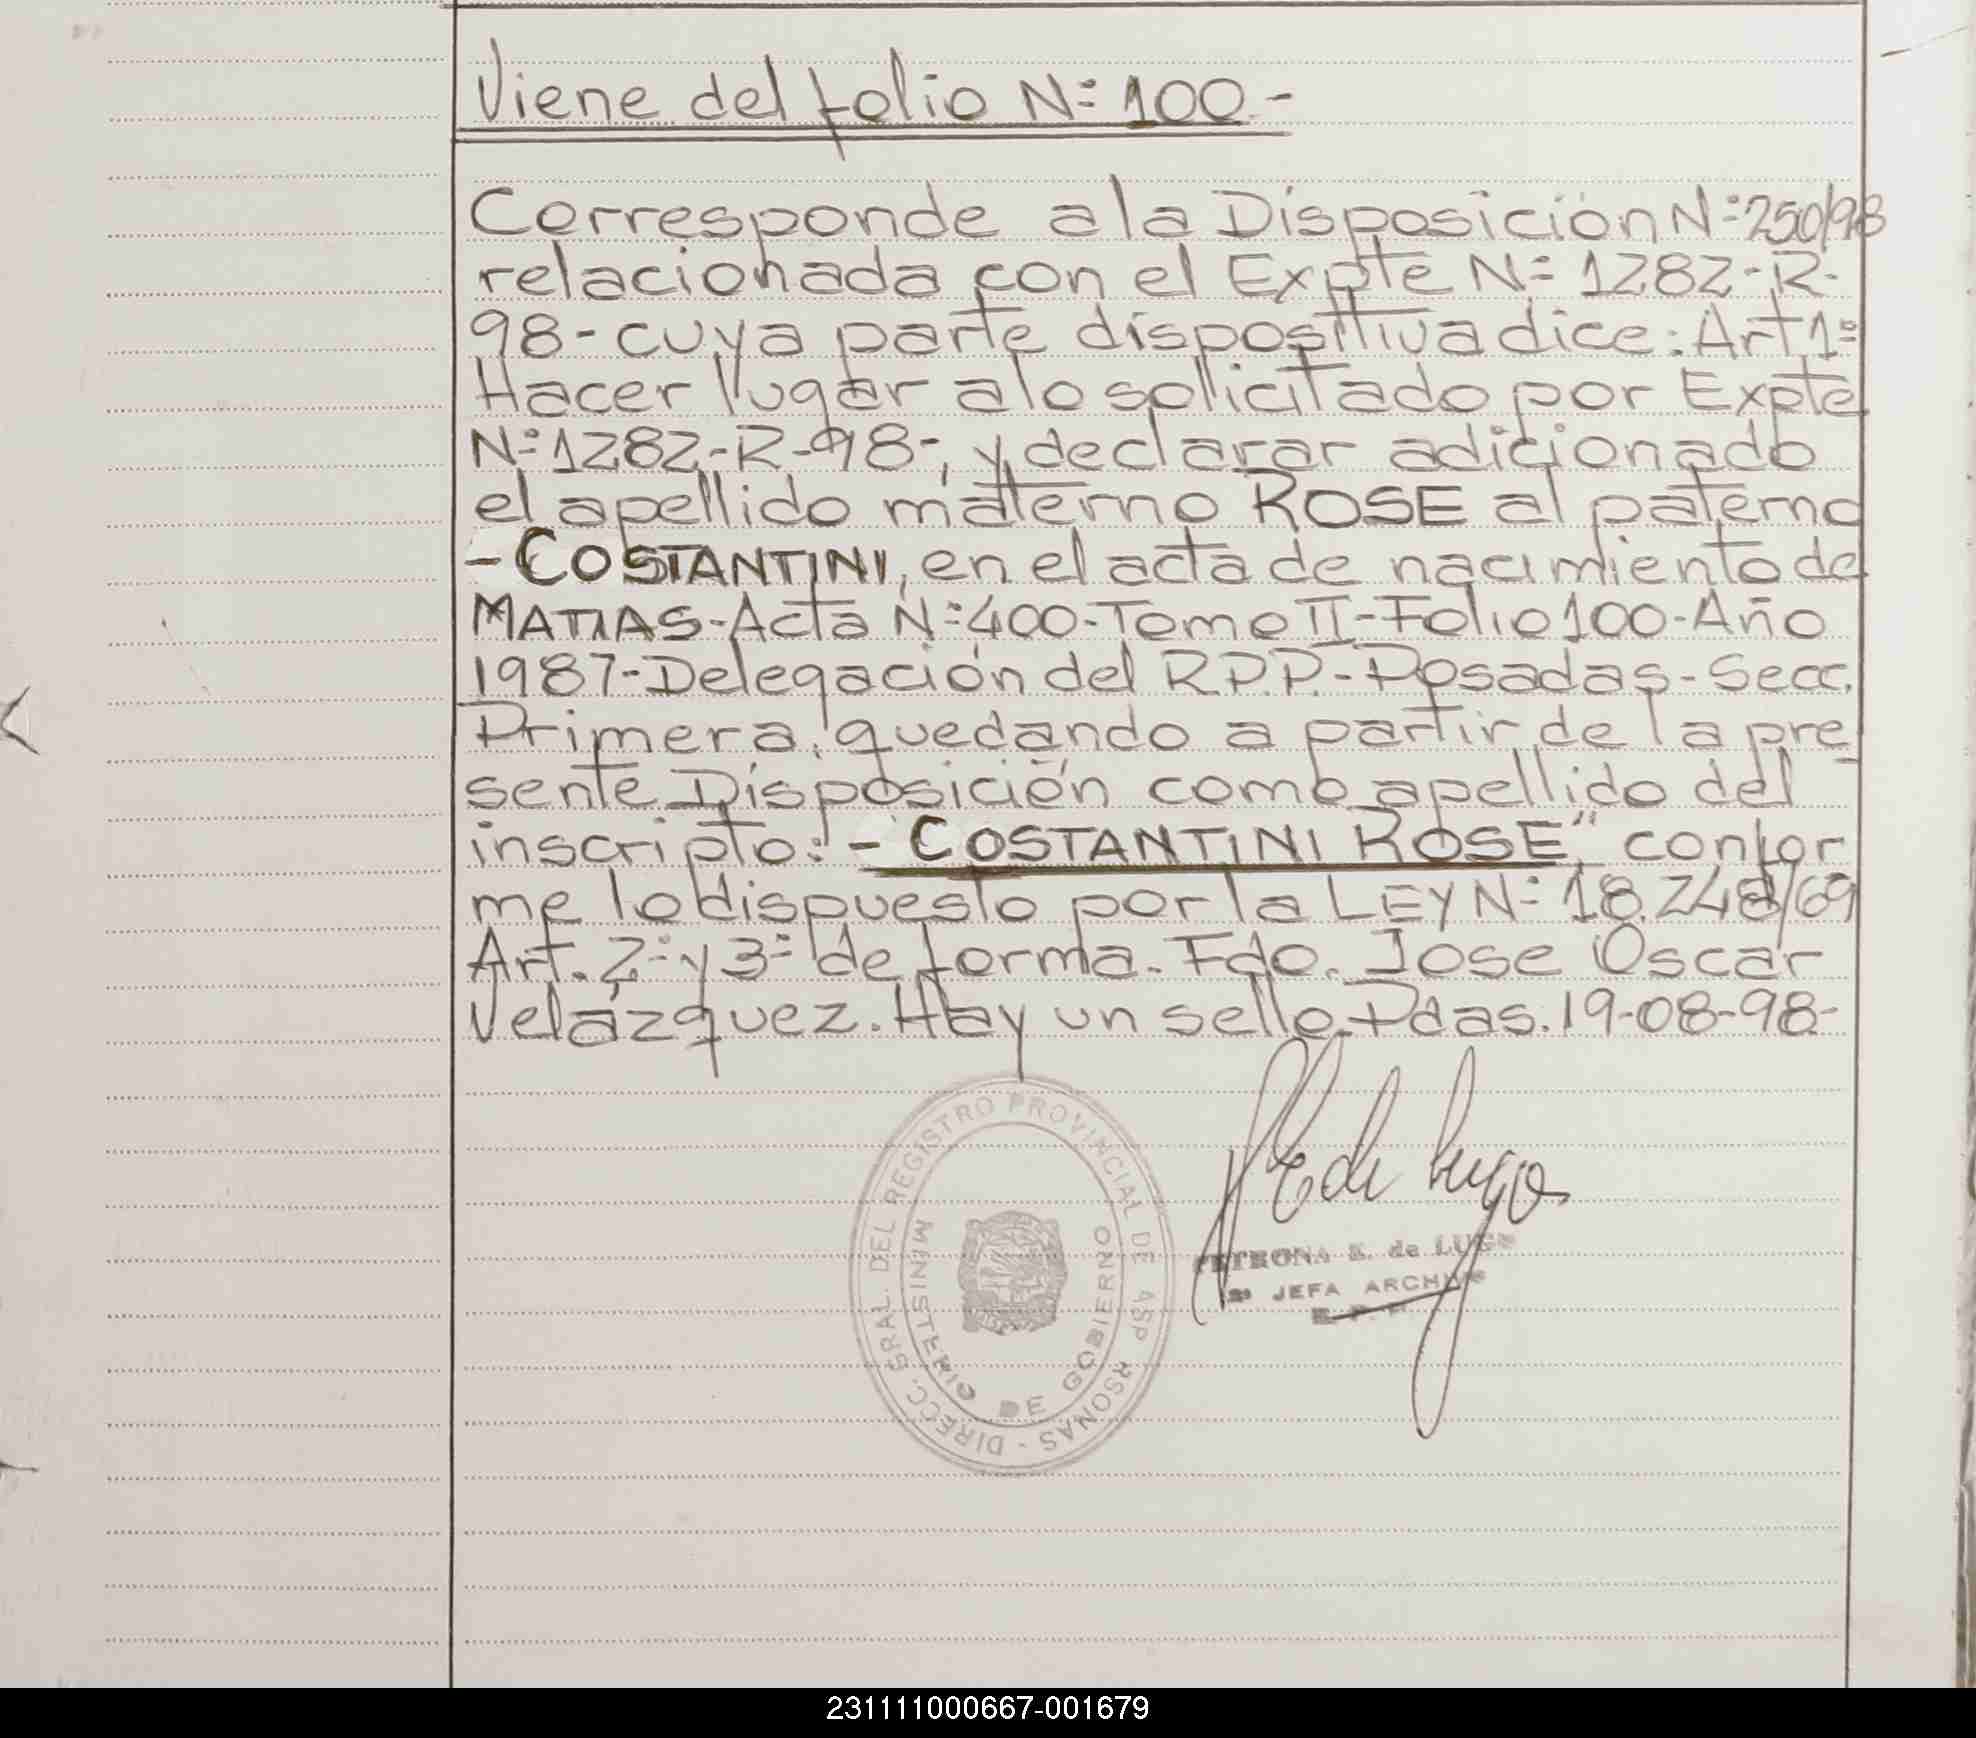 Viene del folio Nº 100.-
Corresponde a la Disposición Nº 250/98
relacionada con el Expte Nº 1282-R-
98-cuya parte dispositiva dice: Art 1º
Hacer lugar a lo solicitado por Expte
Nº 1282-R-98-, y declarar adicionado
el apellido materno ROSE al paterno
-COSTANTINI, en el acta de nacimiento de
MATIAS-Acta Nº 400-Tomo II-Folio 100-Año
1987-Delegación del R.P.P.-Posadas-Secc.
Primera, quedando a partir de la pre
sente Disposición como apellido del
inscripto:-"COSTANTINI ROSE" confor
me lo dispuesto por la LEY Nº 18.248/69
Art. 2º y 3º de forma. Fdo. Jose Oscar
Velázquez. Hay un sello. Pdas. 19-08-98-
DIRECC. GRAL. DEL REGISTRO PROVINCIAL DE PERSONAS -
MINISTERIO DE GOBIERNO
PETRONA E. de LUGO
JEFA ARCHIVO